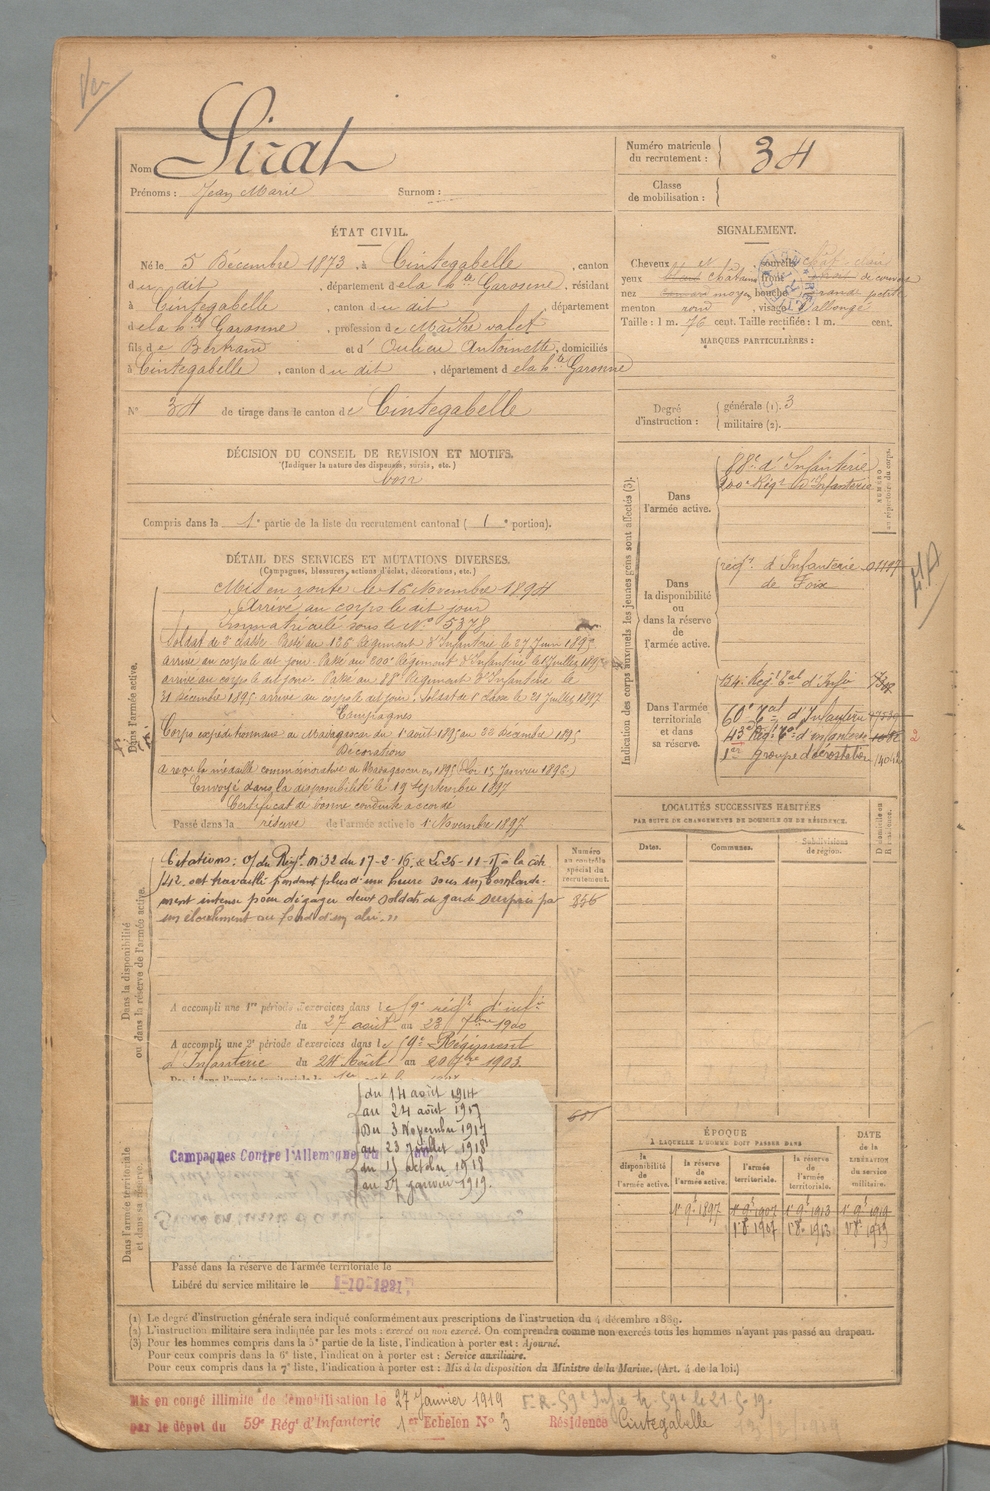 Sirat
Nom
Prénoms : Jean Marie Surnom :
Numéro matricule
du recrutement : 34
Classe
de mobilisation :
ÉTAT CIVIL.
Né le 5 Décembre 1873, à Cintegabelle, canton
du dit, département de la hte Garonne, résidant
à Cintegabelle, canton du dit, département
de la hte Garonne, profession de Maître valet
fils de Bertrand et d' Antoinette, domiciliés
à Cintegabelle, canton du dit, département de la hte Garonne
N° 34 de tirage dans le canton de Cintegabelle
DÉCISION DU CONSEIL DE REVISION ET MOTIFS.
(Indiquer la nature des dispenses, sursis, etc.)
bon
Compris dans la 1e partie de la liste du recrutement cantonal ( 1e portion).
SIGNALEMENT.
Cheveux et sourcils chât. clair
yeux châtains front de couvert
nez moyen bouche petite
menton rond, visage allongé
Taille : 1 m. 76 cent. Taille rectifiée : 1 m. cent.
MARQUES PARTICULIÈRES :
Degré
d'instruction :
générale (1). 3
militaire (2).
DÉTAIL DES SERVICES ET MUTATIONS DIVERSES.
(Campagnes, blessures, actions d'éclat, décorations, etc.)
Dans l'armée active.
Mis en route le 16 Novembre 1894
Arrivé au corps le dit jour
Immatriculé sous le N° 5378
Soldat de 2e classe. Passé au 126 Régiment d'Infanterie le 27 Juin 1895
arrivé au corps le dit jour. Passé au 200e Régiment d'Infanterie le 1 Juillet 1895
arrivé au corps le dit jour. Passé au 88e Régiment d'Infanterie le
31 décembre 1895 arrivé au corps le dit jour. Soldat de 1e classe le 21 Juillet 1897
Campagnes
Corps expéditionnaire de Madagascar du 1 août 1895 au 28 décembre 1895
Décorations
a reçu la médaille commémorative de Madagascar en 1895 (Loi 15 Janvier 1896)
Envoyé dans la disponibilité le 19 Septembre 1897
Certificat de bonne conduite accordé
Passé dans la réserve de l'armée active le 1 Novembre 1897
Indication des corps auxquels les jeunes gens sont affectés (3).
Dans
l'armée active.
88e d'Infanterie
200e Régt d'Infanterie
NUMÉRO
au répertoire du corps.
Dans
la disponibilité
ou
dans la réserve
de
l'armée active.
régt. d'Infanterie
de Foix
Dans l'armée
territoriale
et dans
sa réserve.
134e Régt tal d'Infie
60e tal d'Infanterie
43e Régt tal d'infanterie
1er groupe d'aérostation
Dans la disponibilité
ou dans la réserve de l'armée active.
Citations : O/ du Régt n° 32 du 17-2-16. Le 26-11-15 à la côte
142 ont travaillé pendant plus d'une heure sous un bombarde-
ment intense pour dégager deux soldats de garde surpris par
un éboulement au fond d'un abri. »
Numéro
au contrôle
spécial du
recrutement.
A accompli une 1re période d'exercices dans le 59e régt d'infie
du 27 août au 23 7bre 1900
A accompli une 2e période d'exercices dans le 59e Régiment
d'Infanterie du 24 Août au 20 7bre 1903
LOCALITÉS SUCCESSIVES HABITÉES
PAR SUITE DE CHANGEMENTS DE DOMICILE OU DE RÉSIDENCE.
Dates. Communes. Subdivisions
de région. Domicile ou
Résidence.
Dans l'armée territoriale
et dans sa réserve.
Campagnes Contre l'Allemagne
du 14 août 1914
au 24 août 1917
Du 3 Novembre 1917
au 23 Juillet 1918
du 15 octobre 1918
au 27 janvier 1919.
Passé dans la réserve de l'armée territoriale le
Libéré du service militaire le 1-10-1921
ÉPOQUE
À LAQUELLE L'HOMME DOIT PASSER DANS
la
disponibilité
de
l'armée active.
la réserve
de
l'armée active.
l'armée
territoriale.
la réserve
de
l'armée
territoriale.
DATE
de la
LIBÉRATION
du service
militaire.
1 9e 1897 1 9e 1907 1 9e 1913 1 9e 1919
1 8e 1907 1 8e 1913 1 8e 1919
(1) Le degré d'instruction générale sera indiqué conformément aux prescriptions de l'instruction du 4 décembre 1889.
(2) L'instruction militaire sera indiquée par les mots : exercé ou non exercé. On comprendra comme non exercés tous les hommes n'ayant pas passé au drapeau.
(3) Pour les hommes compris dans la 5e partie de la liste, l'indication à porter est : Ajourné.
Pour ceux compris dans la 6e liste, l'indication à porter est : Service auxiliaire.
Pour ceux compris dans la 7e liste, l'indication à porter est : Mis à la disposition du Ministre de la Marine. (Art. 4 de la loi.)
Mis en congé illimité de démobilisation le 27 Janvier 1919
par le dépôt du 59e Régt d'Infanterie 1er Echelon N° 3 Résidence Cintegabelle